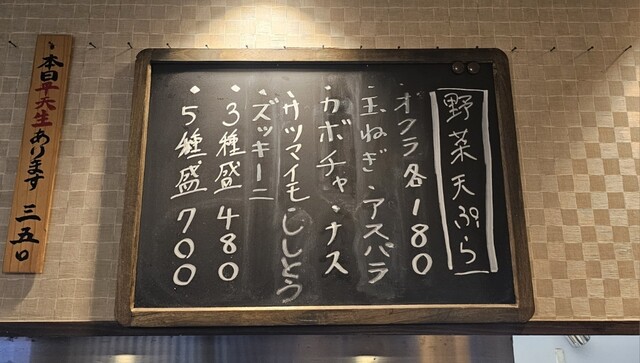 野菜天ぷら
・オクラ 各180
・玉ねぎ・アスパラ
・カボチャ・ナス
・サツマイモ・ししとう
・ズッキーニ
・3種盛 480
・5種盛 700
・本日平天生あります 三五〇